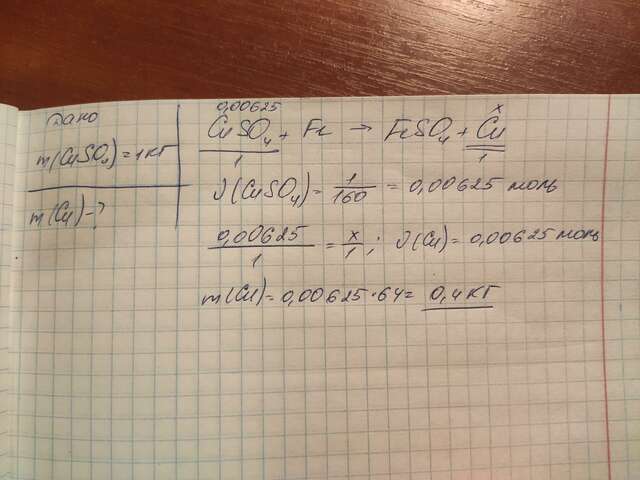 Дано
m(CuSO₄) = 1 кг
m(Cu) - ?
0,00625 x
CuSO₄ + Fe → FeSO₄ + Cu
1 1
ν(CuSO₄) = 1/160 = 0,00625 моль
0,00625/1 = x/1 ; ν(Cu) = 0,00625 моль
m(Cu) = 0,00625 · 64 = 0,4 кг